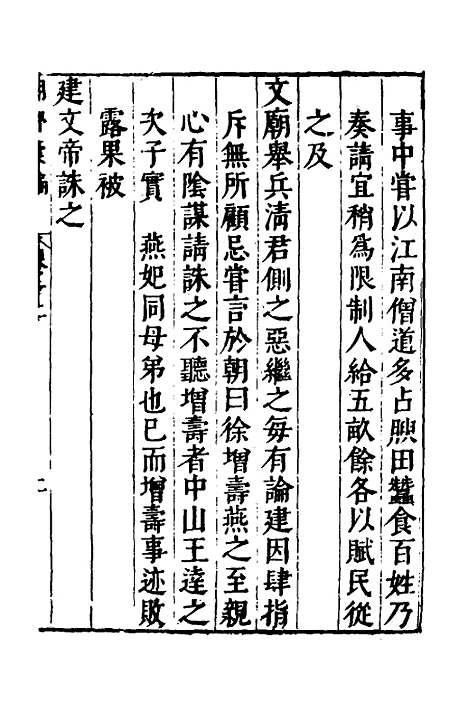 事中嘗以江南僧道多占腴田蠶食百姓乃
奏請宜稍爲限制人給五畝餘各以賦民從
之及
文廟舉兵淸君側之惡繼之每有論建因肆指
斥無所顧忌嘗言於朝曰徐增壽燕之至親
心有陰謀請誅之不聽增壽者中山王逵之
次子實　燕妃同母弟也已而增壽事迹敗
露果被
建文帝誅之